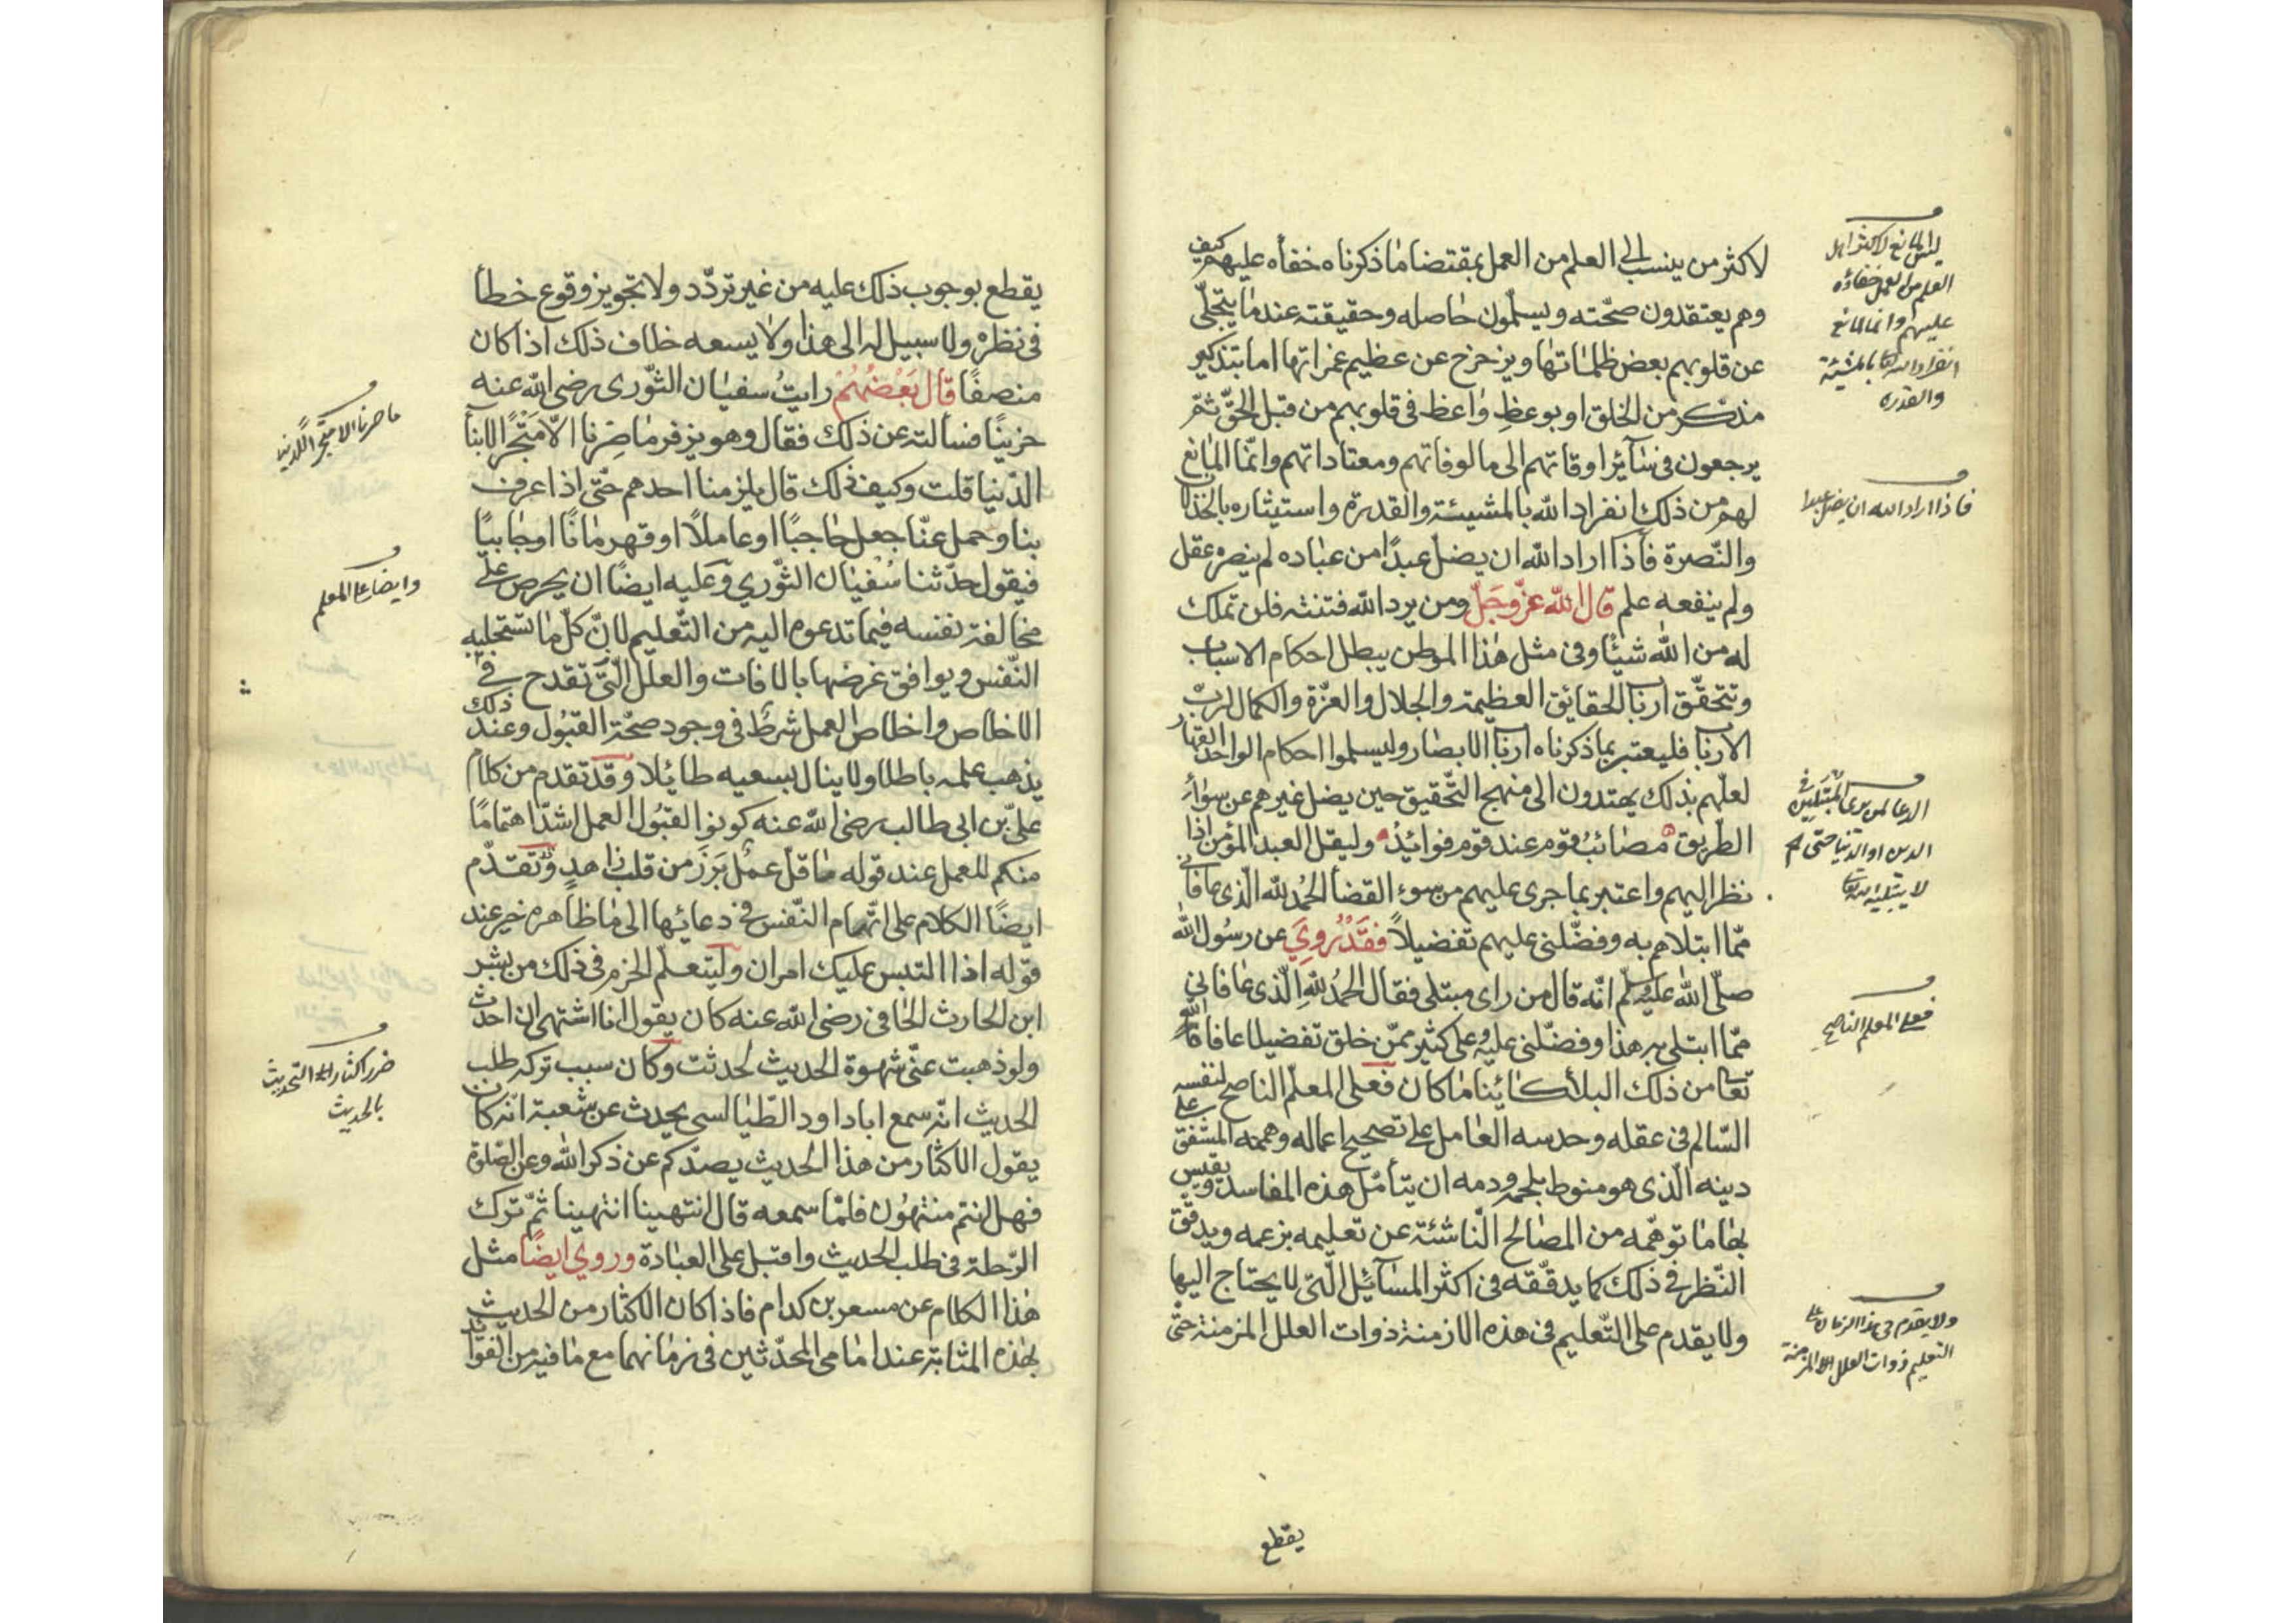 لاكثر من ينسب الى العلم من العمل بمقتضا ما ذكرناه خفاه عليهم كيف
وهم يعتقدون صحّته ويسلّمون حاصله وحقيقته عند ما يتجلّى
عن قلوبهم بعض ظلماتها ويزحزح عن عظيم غمراتها اما بتذكير
مذكّر من الخلق او بوعظ واعظ فى قلوبهم من قبل الحقّ ثمّ
يرجعون فى سآئر اوقاتهم الى مالوفاتهم ومعتاداتهم وانّما المانع
لهم من ذلك انفراد الله بالمشيئة والقدرة واستيثاره بالخذلان
والنّصرة فأذا اراد الله ان يضلّ عبدًا من عباده لم ينصره عقل
ولم ينفعه علم قال الله عزّ وجَلّ ومن يرد الله فتنته فلن تملك
له من الله شيئًا وفى مثل هذا الموطن يبطل احكام الاسباب
وتتحقّق ارباب الحقائق العظيمة والجلال والعزّة والكمال لربّ
الارباب فليعتبر بما ذكرناه ارباب الابصار وليسلموا احكام الواحد القهار
لعلّهم بذلك يهتدون الى منهج التّحقيق حين يضل غيرهم عن سوآء
الطّريق مصائبُ قوم عند قوم فوائدُ وليقل العبد المؤمن اذا
نظر اليهم واعتبر بما جرى عليهم من سوء القضأ الحمُد لله الّذى عافانى
ممّا ابتلاهم به وفضّلنى عليهم تفضيلاً فقَدْ رُوِيَ عن رسُول الله
صلّى الله عليْه وسلّم انّه قال من راى مبتلى فقال الحمُد للهِ الّذى عافانى
ممّا ابتلى به هذا وفضّلنى عليْه وعلى كثير ممّن خلق تفضيلا عافاه الله
تعا من ذلك البلاء كائنا ما كان فعلى المعلّم الناصح لنفسه
السّالم فى عقله وحدسه العامل على تصحيح اعماله وهمته المشفق على
دينه الّذى هو منوط بلحمه ودمه ان يتأمّل هذه المفاسد ويقيس
بها ما توهّمه من المصالح النّاشئة عن تعليمه بزعمه ويدقّق
النّظر فى ذلك كما يدقّقه فى اكثر المسآئل الّتى لا يحتاج اليها
ولا يقدم على التّعليم فى هذه الازمنة ذوات العلل المزمنة حتّى
يقطع
ليس المانع لاكثر اهل
العلم من العمل خفاؤه
عليهم وانما المانع
انفراد الله تعا بالمشيئة
والقدره
فاذا اراد الله ان يضل عبدا
الدعا لمن يرى المبتلين فى
الدين او الدنيا حتى
لا يبتليه الله تعا
فعلى المعلم الناصح
ولا يقدم فى هذا الزمان على
التعليم ذوات العلل المزمنة
يقطع بوجوب ذلك عليه من غير تردّد ولا تجويز وقوع خطأ
فى نظره ولا سبيل له الى هذا ولا يسعه خلاف ذلك اذا كان
منصفًا قال بَعْضُهُمْ رايتُ سفيان الثّورى رضى الله عنه
حزينًا فسألته عن ذلك فقال وهو يزفر ما صِرْنا الّا مَتْجًرا لابنأ
الدّنيا قلت وكيف ذلك قال يلزمنا احدهم حتّى اذا عرف
بنا وحمل عنّا جعل حاجبًا او عاملًا او قهرمانًا او جابيًا
فيقول حدّثنا سُفيان الثّوري وعَليه ايضًا ان يحرص على
مخالفة نفسه فيما تدعوه اليه من التّعليم لانّ كلّ ما تستجلبه
النّفس ويوافق غرضها بالافات والعلل الّتى تقدح فى
الاخلاص واخلاص العمل شرطٌ فى وجود صحّة القبُول وعند ذلك
يذهب علمه باطلا ولا ينال بسعيه طائلا وقد تقدم من كلام
علىّ بن ابى طالب رضى الله عنه كونوا لقبُول العمل اشدّ اهتمامًا
منكم للعمل عند قوله ما قلّ عمُل بَرَزَ من قلب زاهد وتقدّم
ايضًا الكلام على اتّهام النّفس فى دعائها الى ما ظاهره خير عند
قوله اذا التبس عليك امران وليتعلّم الحزم فى ذلك من بشر
ابن الحارث الحافى رضى الله عنه كان يقول انا اشتهى ان احدّث
ولو ذهبت عنّى شهوة الحديث لحدثت وكان سبب تركه طلب
الحديث انّه سمع ابا داود الطّيالسى يحدث عن شعبة انّه كان
يقول الاكثار من هذا الحديث يصدّكم عن ذكر الله وعن الصّلوة
فهل انتم منتهوُن فلمّا سمعه قال انتهينا انتهينا ثمّ ترك
الرّحلة فى طلب الحديث واقبل على العبادة وروي ايضًا مثل
هذا الكلام عن مسعر بن كدام فاذا كان الاكثار من الحديث
بهذه المثابة عند امامى المحدّثين فى زمانهما مع ما فيه من الفوائد
ما صرنا الا متجرا لابناء الدنيا
وايضا على المعلم
ضرر اكثار التحديث
بالحديث